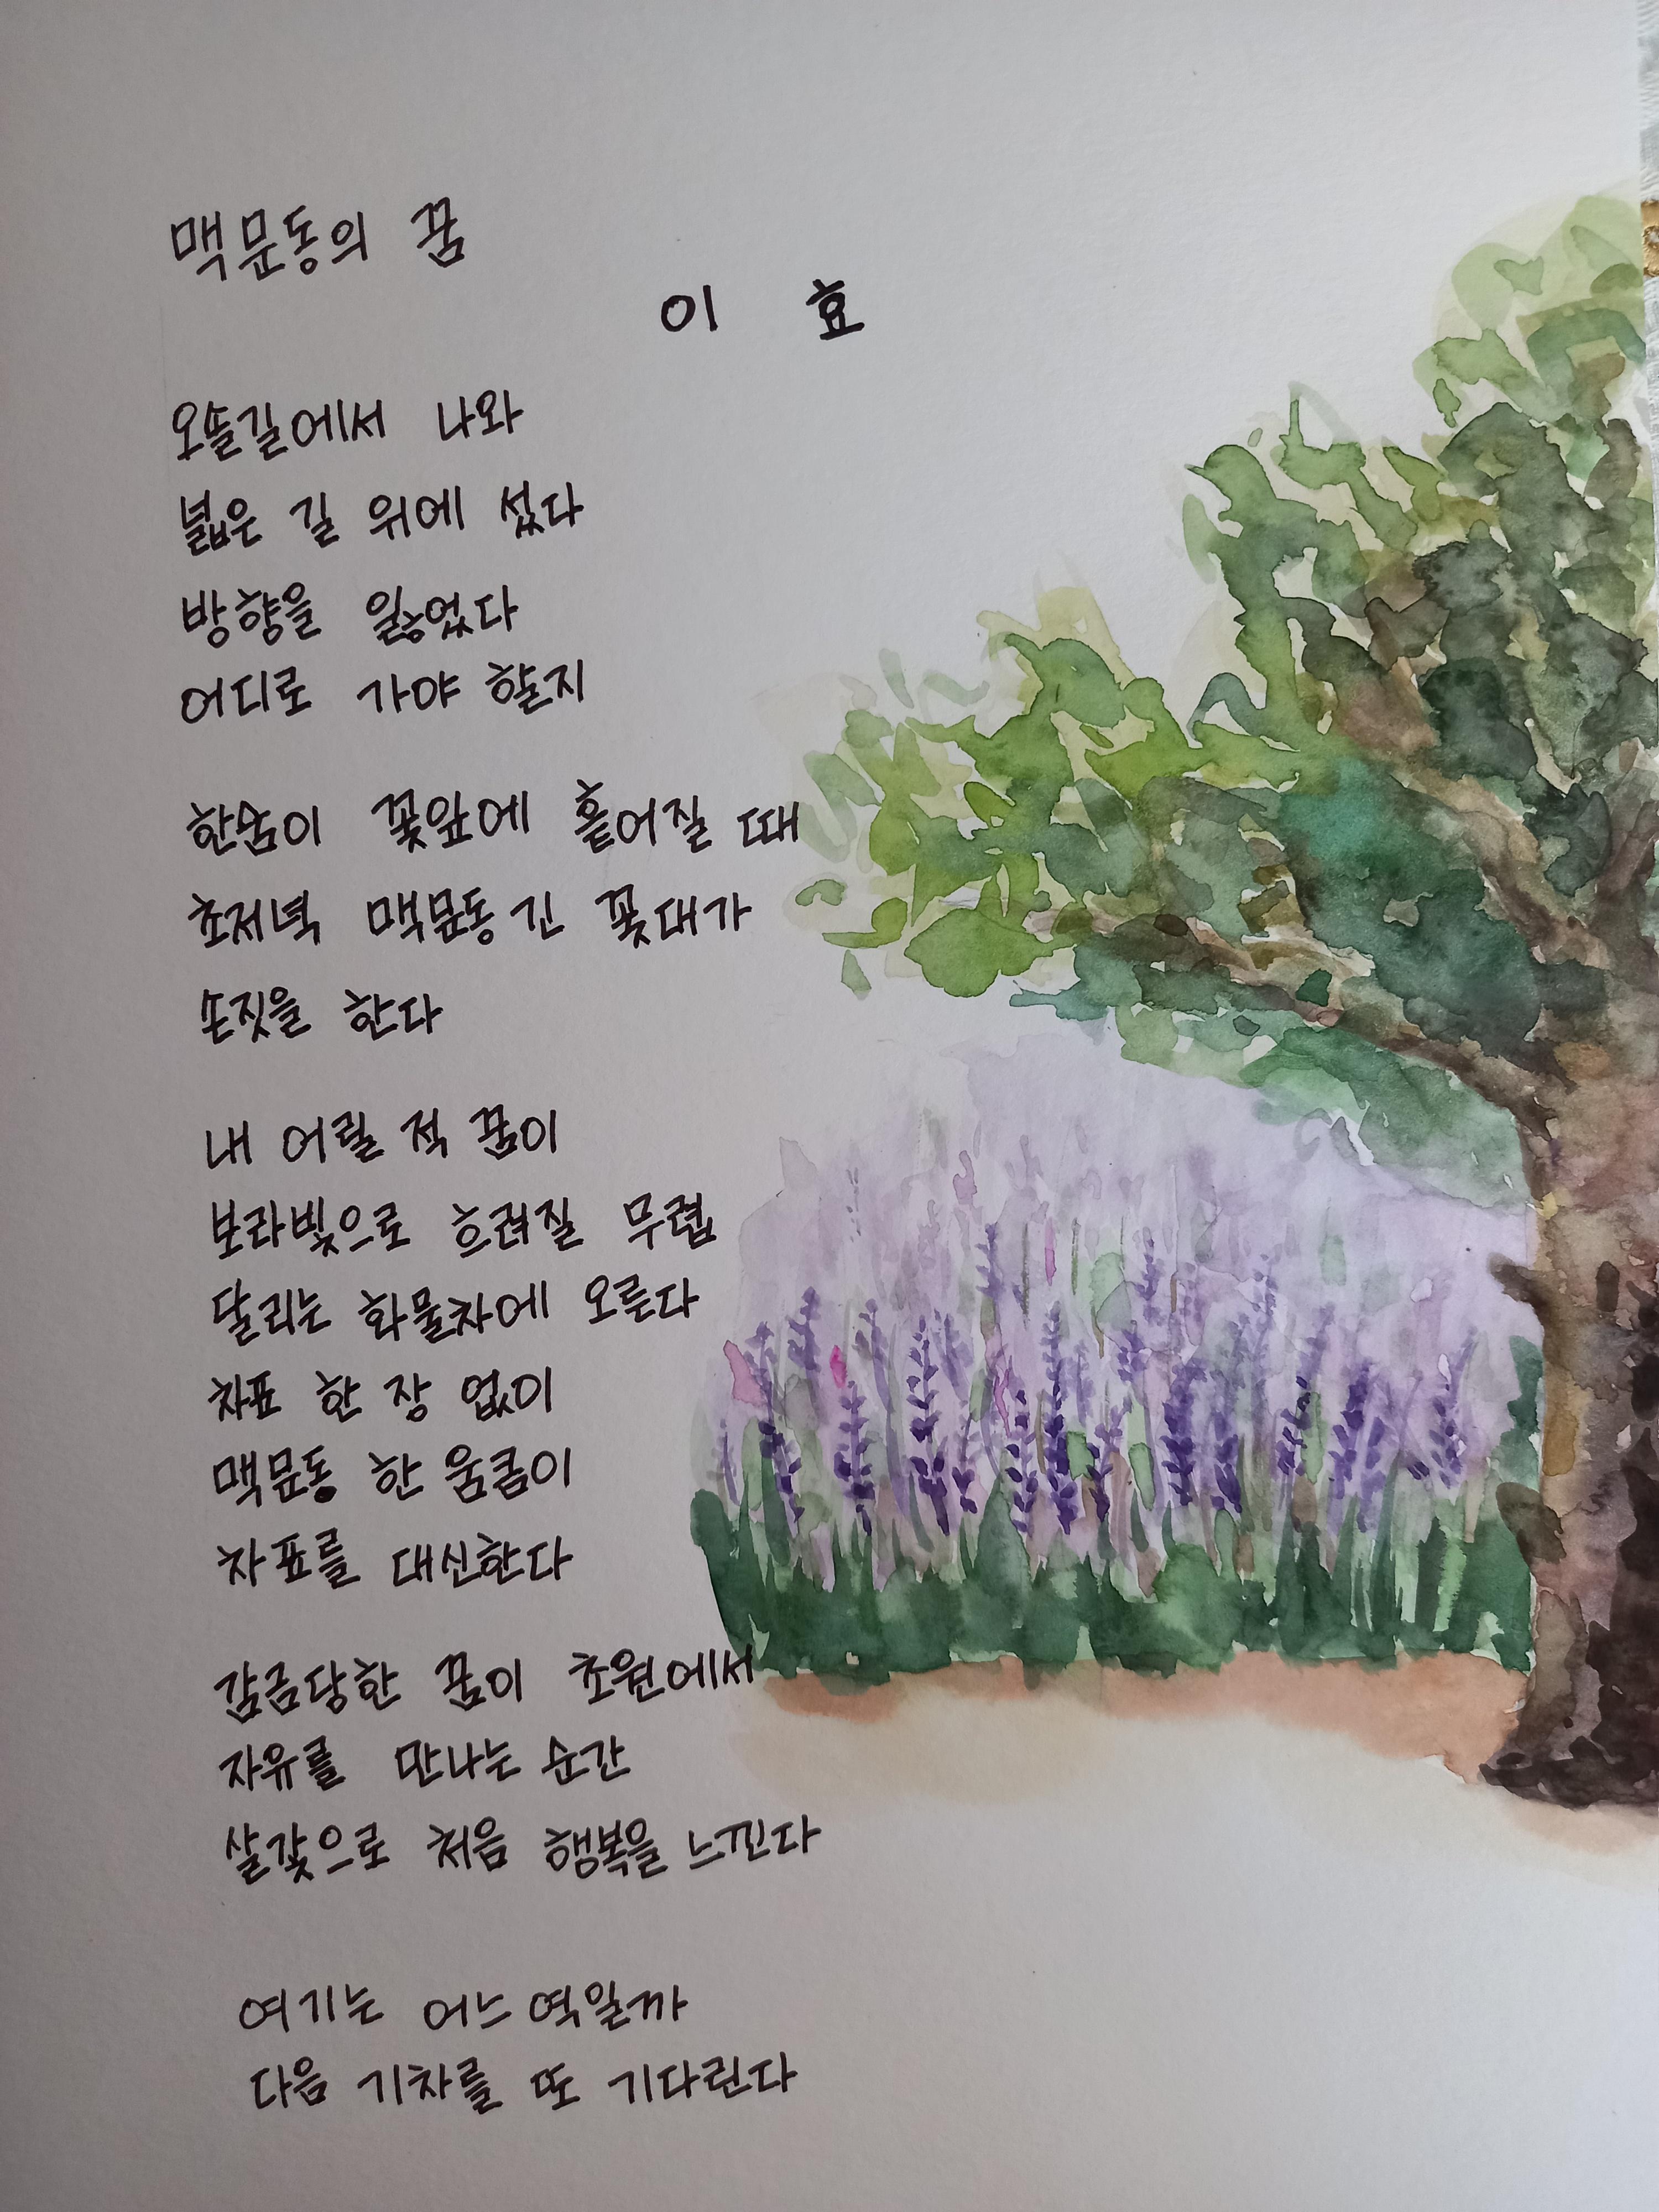 맥문동의 꿈
이 효
오솔길에서 나와
넓은 길 위에 섰다
방향을 잃었다
어디로 가야 할지
한숨이 꽃앞에 흩어질 때
초저녁 맥문동 긴 꽃대가
손짓을 한다
내 어릴 적 꿈이
보라빛으로 흐려질 무렵
달리는 화물차에 오른다
차표 한 장 없이
맥문동 한 움큼이
차표를 대신한다
감금당한 꿈이 초원에서
자유를 만나는 순간
살갗으로 처음 행복을 느낀다
여기는 어느 역일까
다음 기차를 또 기다린다